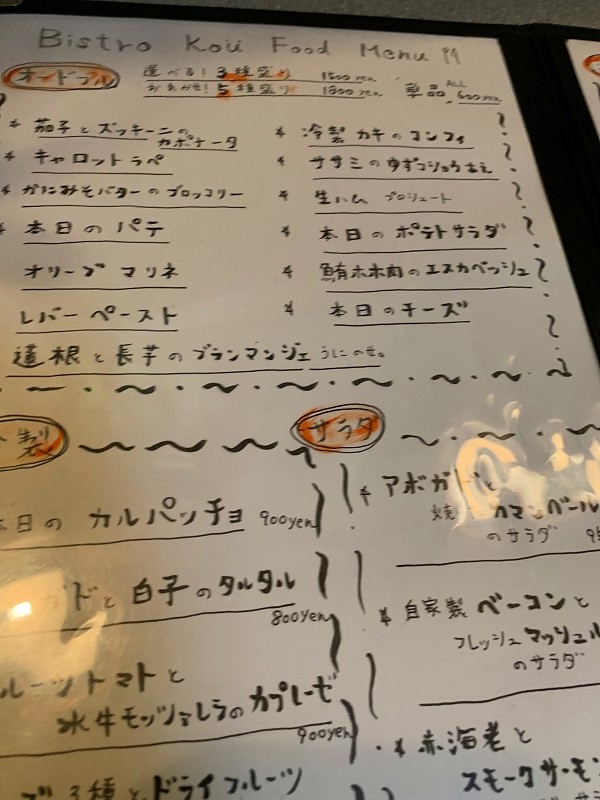 Bistro Koü Food Menu
オードブル
選べる！3種盛り 1500yen
おまかせ！5種盛り 1800yen
単品 ALL 600yen
* 茄子とズッキーニの
カポナータ
* キャロットラペ
* かにみそバターのブロッコリー
* 本日のパテ
オリーブマリネ
レバーペースト
蓮根と長芋のブランマンジェ うにのせ。
* 冷製カキのコンフィ
* ササミのゆずコショウあえ
* 生ハム プロシュート
* 本日のポテトサラダ
* 鮪ホホ肉のエスカベッシュ
* 本日のチーズ
製
本日のカルパッチョ 900yen
ガドと白子のタルタル
800yen
ルーツトマトと
水牛モッツァレラのカプレーゼ
900yen
3種とドライフルーツ
サラダ
* アボガドと
カマンベール
のサラダ
* 自家製ベーコンと
フレッシュマッシュル
のサラダ
* 赤海老と
スモークサーモン